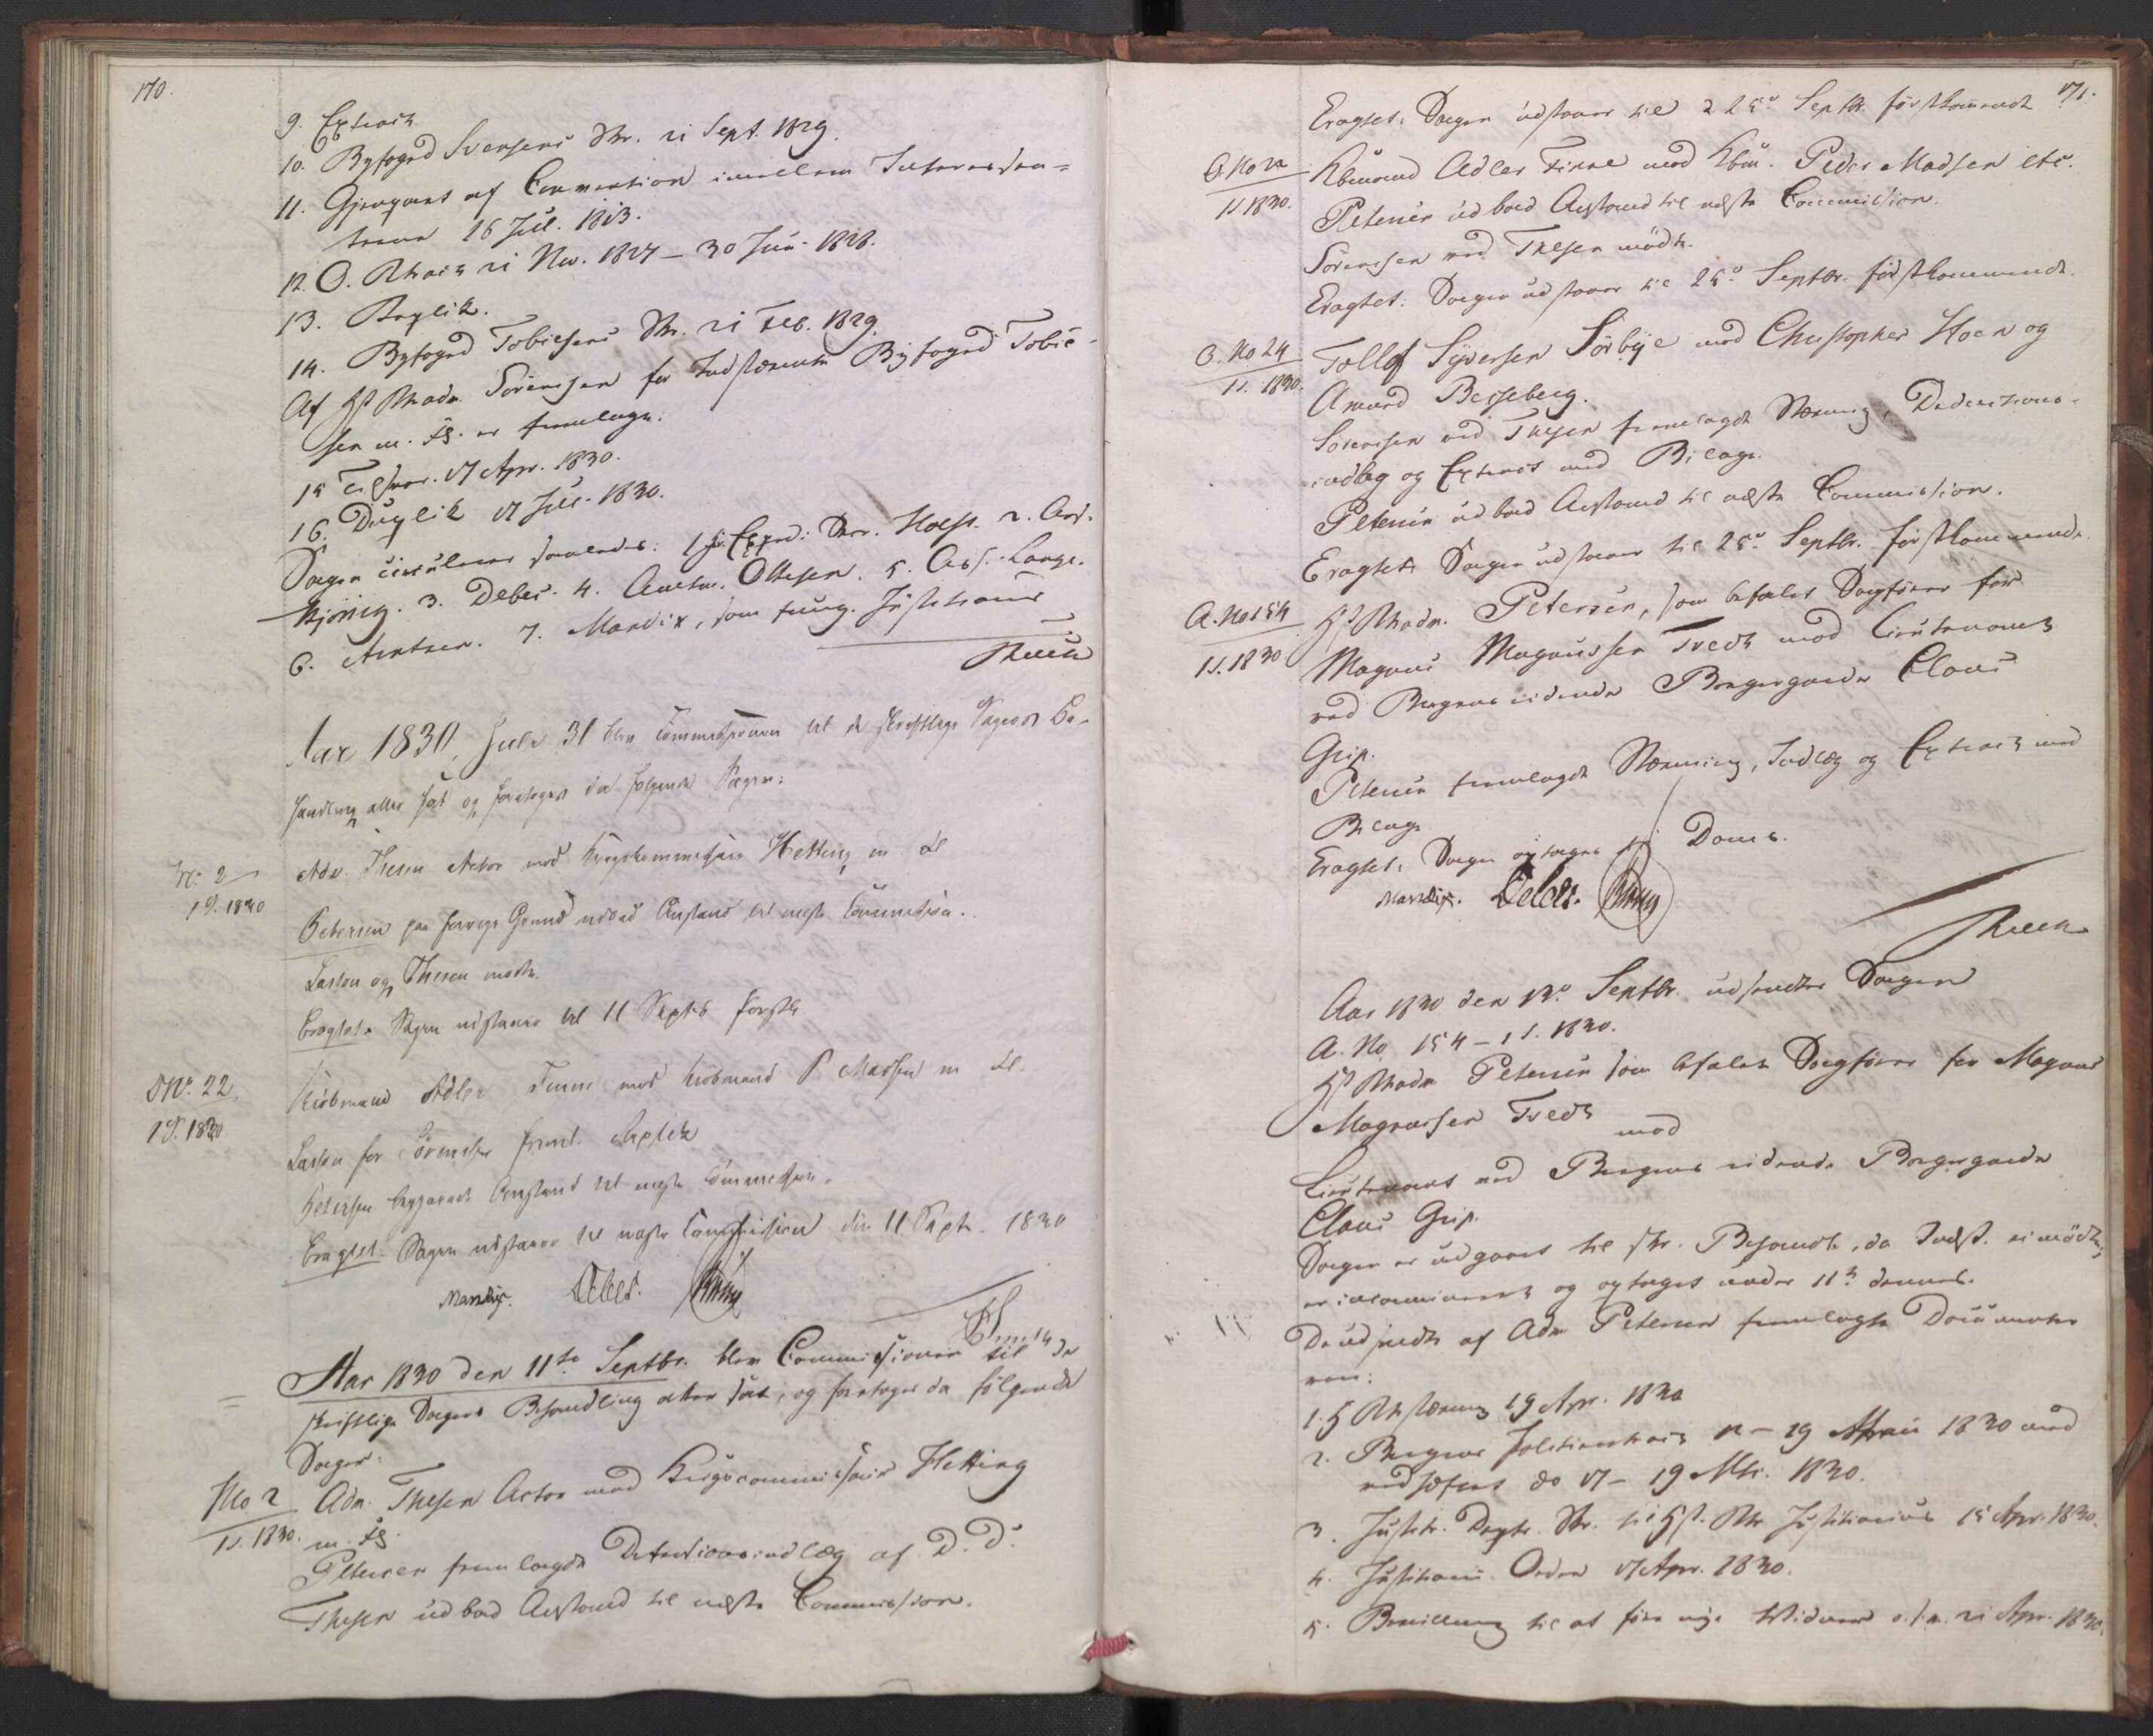 170.
9. Extract.
10. Byfoged Svensens Skr. 21 Sept. 1829.
11. Gjenpart af Convention imellem Interessen-
terne 26 Jul. 1813.
12. O. Rhact 21 Nov. 1827 – 30 Jun. 1828.
13. Replik.
14. Byfoged Tobiesens Skr. 21 Feb. 1829.
Af HstRhadv. Sörensen for Indstævnte Byfoged Tobie-
sen m. Fl. er fremlagt:
15 Tilsvar. 17 Apr. 1830.
16. Duplik 17 Jul. 1830.
Sagen circulerer saaledes: 1 Exped: Secr. Holst. 2. Ass.
3. Debes. 4. Auditør Ottesen. 5. Ass. Lange.
6. Arntzen. 7. Mandix, som fung. Justitiarius
Aar 1830, Juli 31 blev Commissionen til de skriftlige Sagers Be-
handling atter sat og foretoges da følgende Sager:
No. 2
1 S. 1830
Adv. Thesen Actor mod Krigskommissair Hetting m Fl
Petersen paa forrige Grund udbad Anstand til næste Commission.
Lasson og Thesen mødte.
Eragtet: Sagen udstaaer til 11 Septb første
No. 22
1 S. 1830
Kiöbmand Adler Finne mod Kiöbmand P Madsen m Fl.
Lasson for Sörensen freml. Replik
Petersen begjærede Anstand til næste Commission.
Eragtet. Sagen udstaaer til næste Commission den 11 Sept. 1830
Mandix. Debes.
Aar 1830 den 11te Septbr. blev Commissionen til de
skriftlige Sagers Behandling atter sat, og foretoges da følgende
Sager:
No 2
1 S. 1830.
Adv. Thesen Actor mod Krigscommissair Hetting
m. Fl.
Petersen fremlagde Defensionsindlæg af D. D.
Thesen udbad Anstand til næste Commission.
171.
Eragtet: Sagen udstaaer til 25de Septbr. førstkommende
No 22
1 S. 1830.
Kbmand Adler Finne mod Kbm. Peder Madsen etc.
Petersen udbad Anstand til næste Commission.
Sörensen ved Thesen mödte.
Eragtet: Sagen udstaaer til 25de Septbr. førstkommende.
No 24
1 S. 1830.
Tollef Syversen Sörbye mod Christopher Hoen og
Amund Besseberg.
Sörensen ved Thesen fremlagde Stævning, Deductions-
indlæg og Extract med Bilage.
Petersen udbad Anstand til næste Commission.
Eragtet: Sagen udstaaer til 25de Septbr. førstkommende.
A. No 154
1 S. 1830
HstRhadv. Petersen, som befalet Sagförer for
Magnus Magnussen Tvedt mod Lieutenant
ved Bergens ridende Borgergarde Claus
Grip.
Petersen fremlagde Stævning, Indlæg og Extract med
Bilage.
Eragtet: Sagen optages til Doms.
Mandix. Debes.
Aar 1830 den 13de Septbr. udsendtes Sagen
A. No. 154 – 1 S. 1830.
HstRhadv Petersen som befalet Sagförer for Magnus
Magnussen Tvedt
mod
Lieutenant ved Bergens ridende Borgergarde
Claus Grip.
Sagen er udgaaet til skr. Behandl., da Indst. ei mödte,
er incamineret og optaget under 11te dennes.
De udsendte af Adv. Petersen fremlagte Documenter
vare:
1. Hst Rts stævning 19 Apr. 1830
2. Bergens Politiextract 12 – 19 Marts 1830 med
vedhæftet do 17 – 19 Mts. 1830.
3. Justits. Depts. Skr. til Hst. Rts Justitiarius 15 Apr. 1830.
4. Justitiarii Orden 17 Apr. 1830.
5. Bevilling til at føre nye Vidner o. s. v. 21 Apr. 1830.